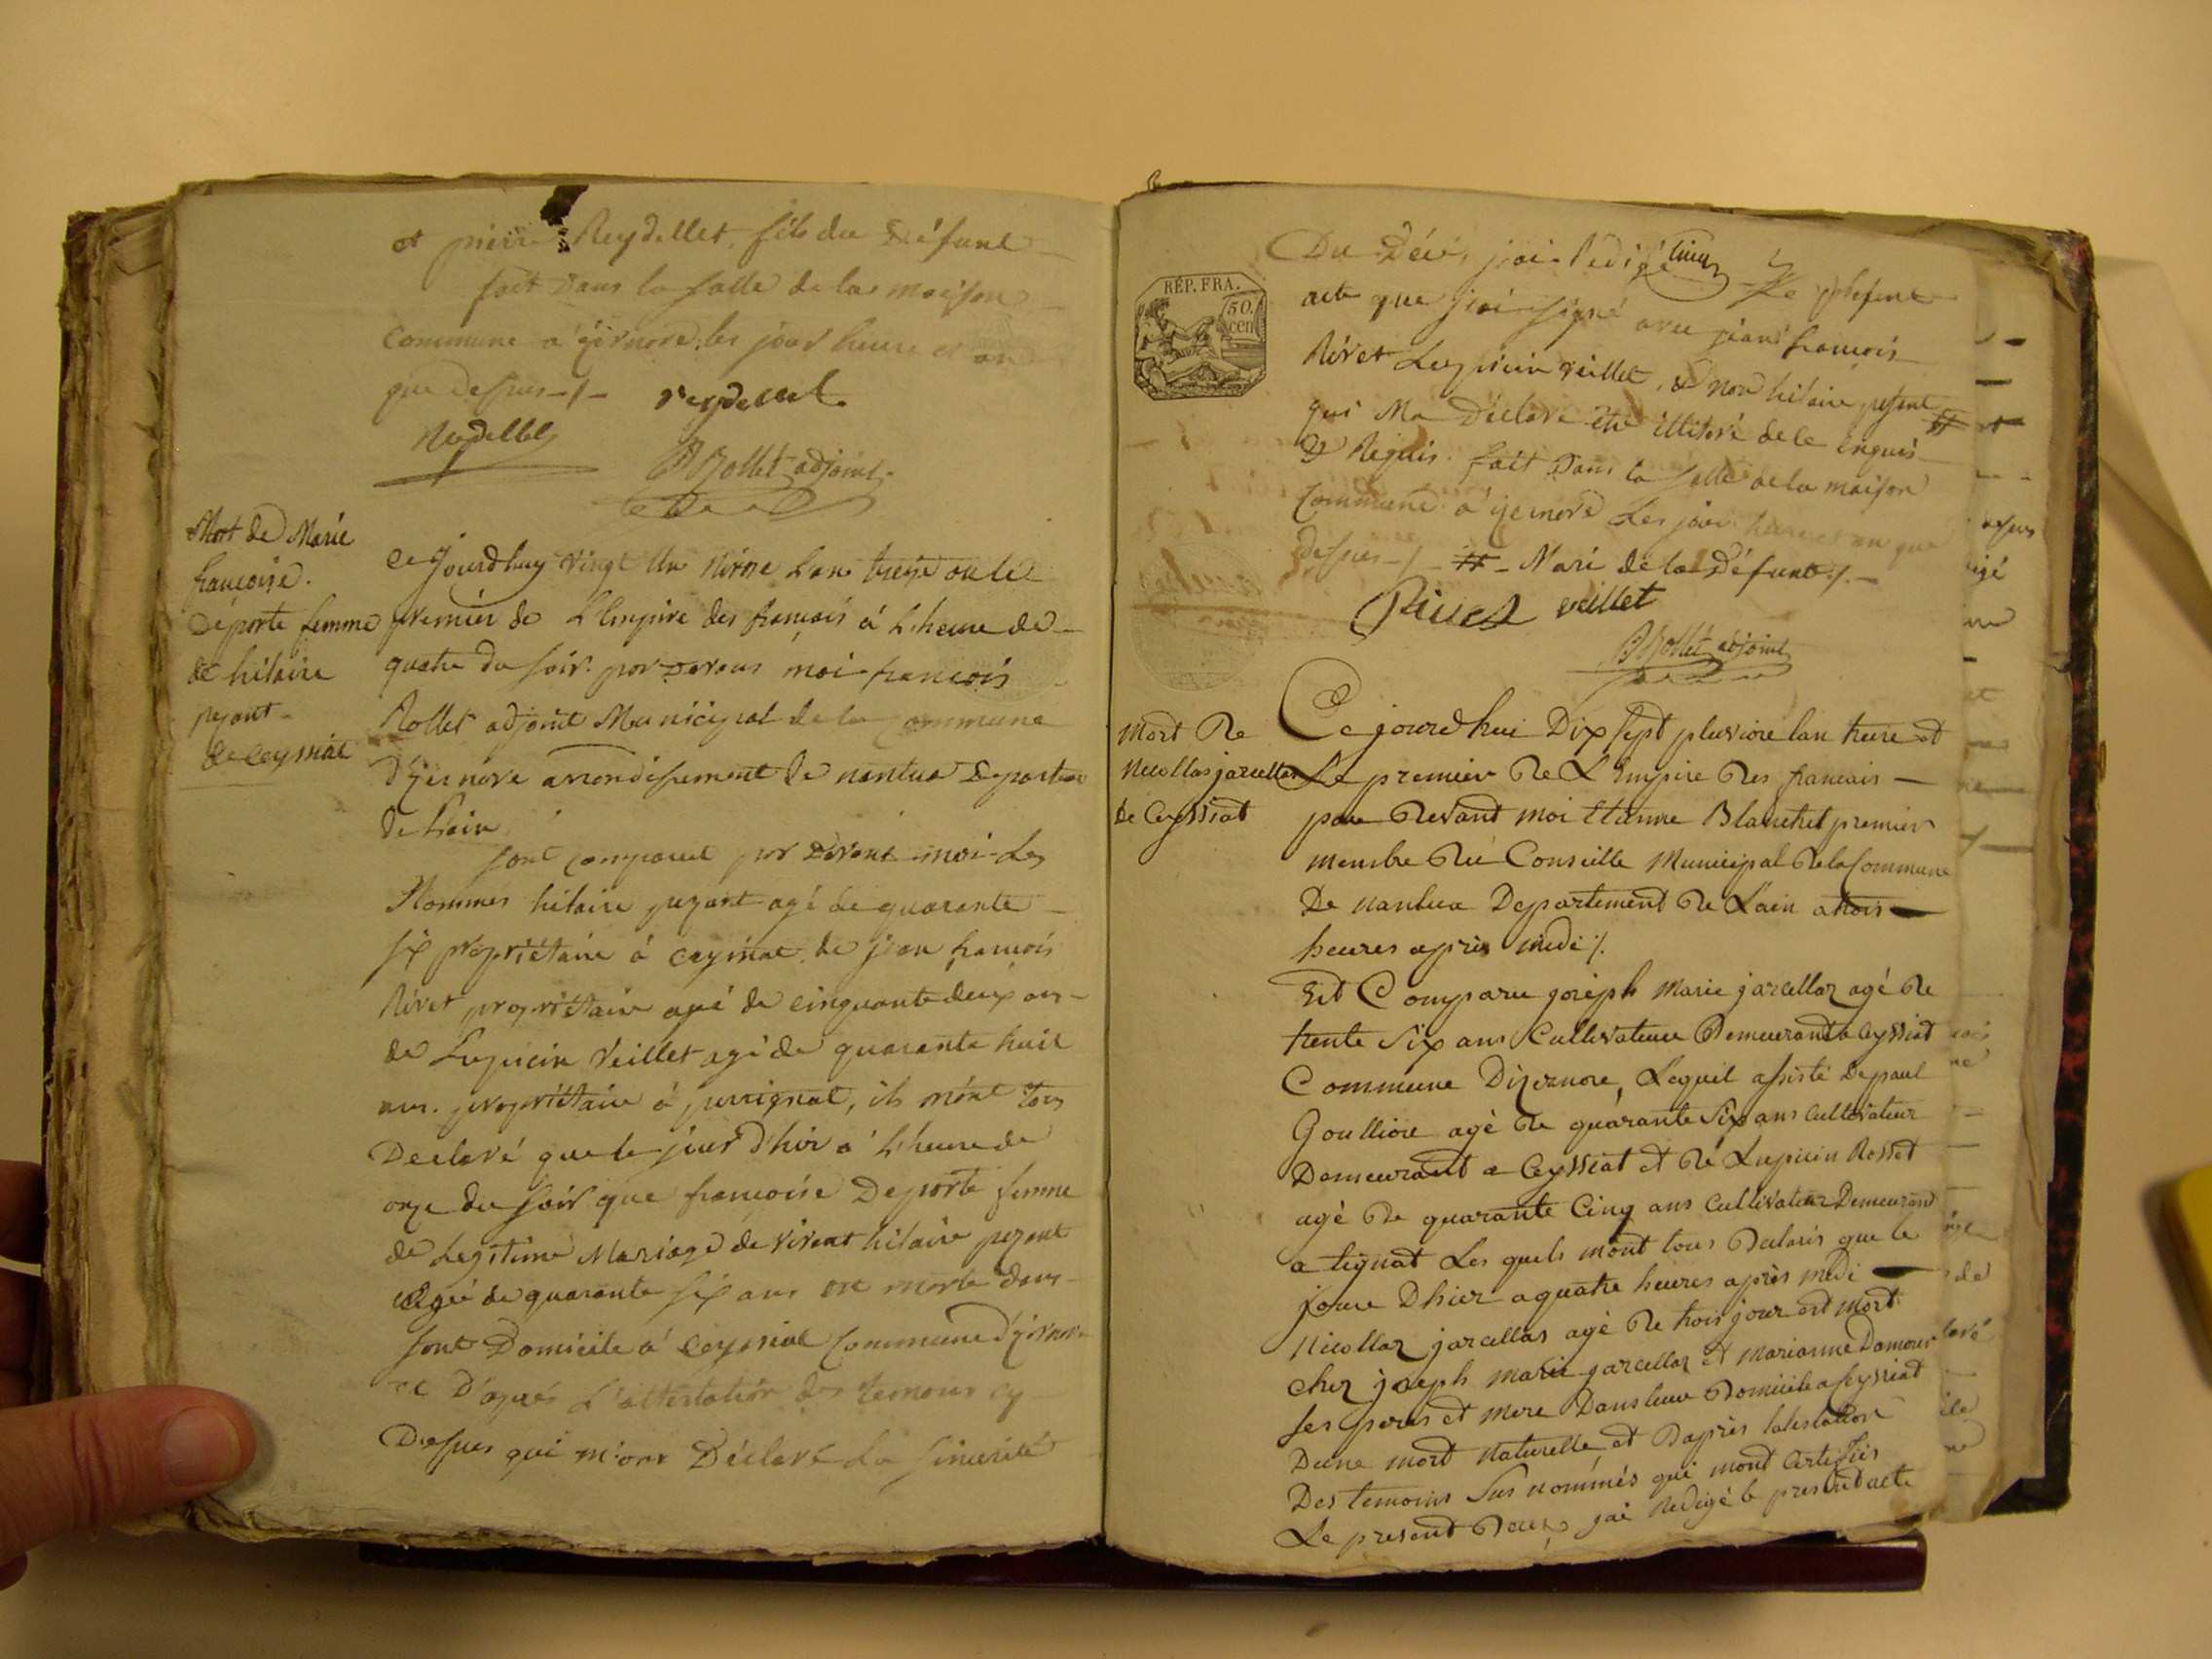 et pierre Reydellet fils du Défunt
fait Dans la salle de la maison
Commune a izernore, les jour heure et an
que dessus -/- reydellet
Reydellet
Rollet adjoint
Mort de Marie
francoise.
Deporte femme
de hilaire
pezant
de Ceyssiat
Ce Jourdhuy vingt un Nivose Lan treize ou le
premier de L'Empire des francais á L'heure de
quatre du soir. par devant moi francois
Rollet adjoint Municipal de la Commune
d'izernore arrondissement de nantua Departem
de Lain
sont comparut par devant moi Les
Nommés hilaire pezant agé de quarante
six propriétaire á Ceyssiat, de jean francois
Rivet propriétaire agé de cinquante deux ans
de Lupicin Veillet agé de quarante huit
ans. propriétaire á perrignat, ils m'ont tous
Declaré que le jour d'hier á L'heure de
onze du soir que francoise Deporte femme
de Legitime Mariage de vivent hilaire pezant
Agée de quarante six ans est morte dans
sont Domicile á Ceyssiat Commune d'izernore
et D'aprés L'attestation des temoins cy
Dessus qui m'ont Déclaré La sincerité
RÉP. FRA.
50.
cen
Du Décé, jai Rédigé Le present
acte que jai signé avec jean francois
Rivet Lupicin veillet, & non hilaire pesant #
qui Ma Declaré être illitéré de le Enquis
& Requis. fait Dans la salle de la maison
Commune á izernore Les jour heure et an que
dessus -/- # - Mari de la Défunte /. -
Rivet veillet
Rollet adjoint
Mort De
Nicollas jarcellar
de Ceyssiat
Ce jourdhui Dix sept pluviose lan treise et
Le premier De L'Empire Des francais —
par Devant moi Etienne Blanchet premier
membre Du Conseille Municipal De la Commune
De nantua Departement De L'ain a trois
heures après midi /.
Est Comparu joseph Marie jarcellar agé De
trente Six ans Cultivateur Demeurant a Ceyssiat
Commune Dizernore, Lequel assisté De paul
Goullioue agé De quarante Six ans Cultivateur
Demeurant a Ceyssiat et De Lupicin Rosset
agé De quarante Cinq ans Cultivateur Demeurant
a tignat Les quels mont tous Declarés que le
joure Dhier a quatre heures après midi
Nicollaz jarcellas agé De trois jour est mort
chez joseph marie jarcellaz et marianne Damour
ses peres et mere Dans leur Domicile a Ceyssiat
Dune mort naturelle, et Daprès latestation
Des temoins Sus nommés qui mont Certifiés
Le present Deces, jai Redigé le present acte